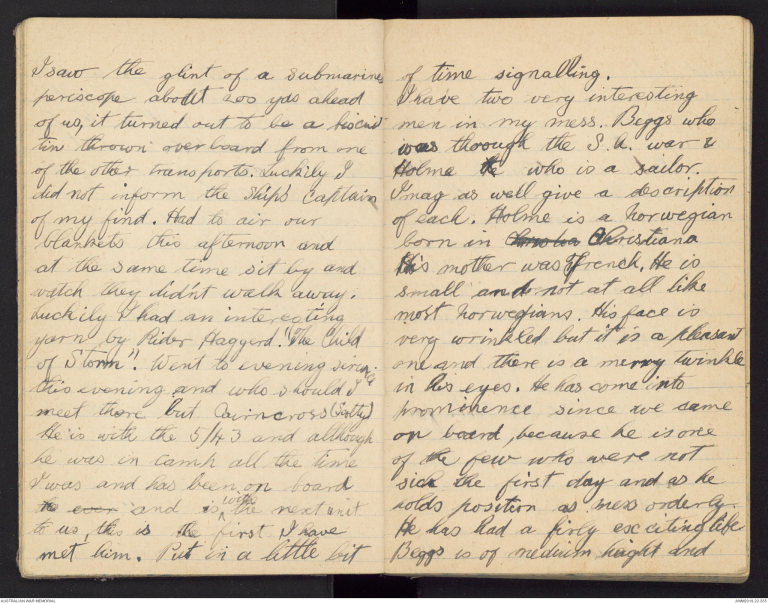 I saw the glint of a submarines
periscope about 200 yds ahead
of us, it turned out to be a biscuit
tin thrown overboard from one
of the other transports. Luckily I
did not inform the Ship's Captain
of my find. Had to air our
blankets this afternoon and
at the same time sit by and
watch they didn't walk away.
Luckily I had an interesting
yarn by Rider Haggerd. "The Child
of Storm". Went to evening singing
this evening and who should I
meet there but Cairncross (Scotty)
He is with the 5/43 and although
he was in camp all the time
I was and has been on board
to ever and is with the next unit
to us, this is the first I have
met him. Put in a little bit
of time signalling.
I have two very interesting
men in my mess. Beggs who
was through the S.A. war &
Holme who is a sailor.
I may as well give a description
of each. Holme is a Norwegian
born in Christiana
His mother was French. He is
small and not at all like
most Norwegians. His face is
very wrinkled but it is a pleasant
one and there is a merry twinkle
in his eyes. He has come into
prominence since we came
on board, because he is one
of the few who were not
sick the first day and as he
holds position as mess orderly.
He has had a firly exciting life
Beggs is of medium hieght and
AUSTRALIAN WAR MEMORIAL